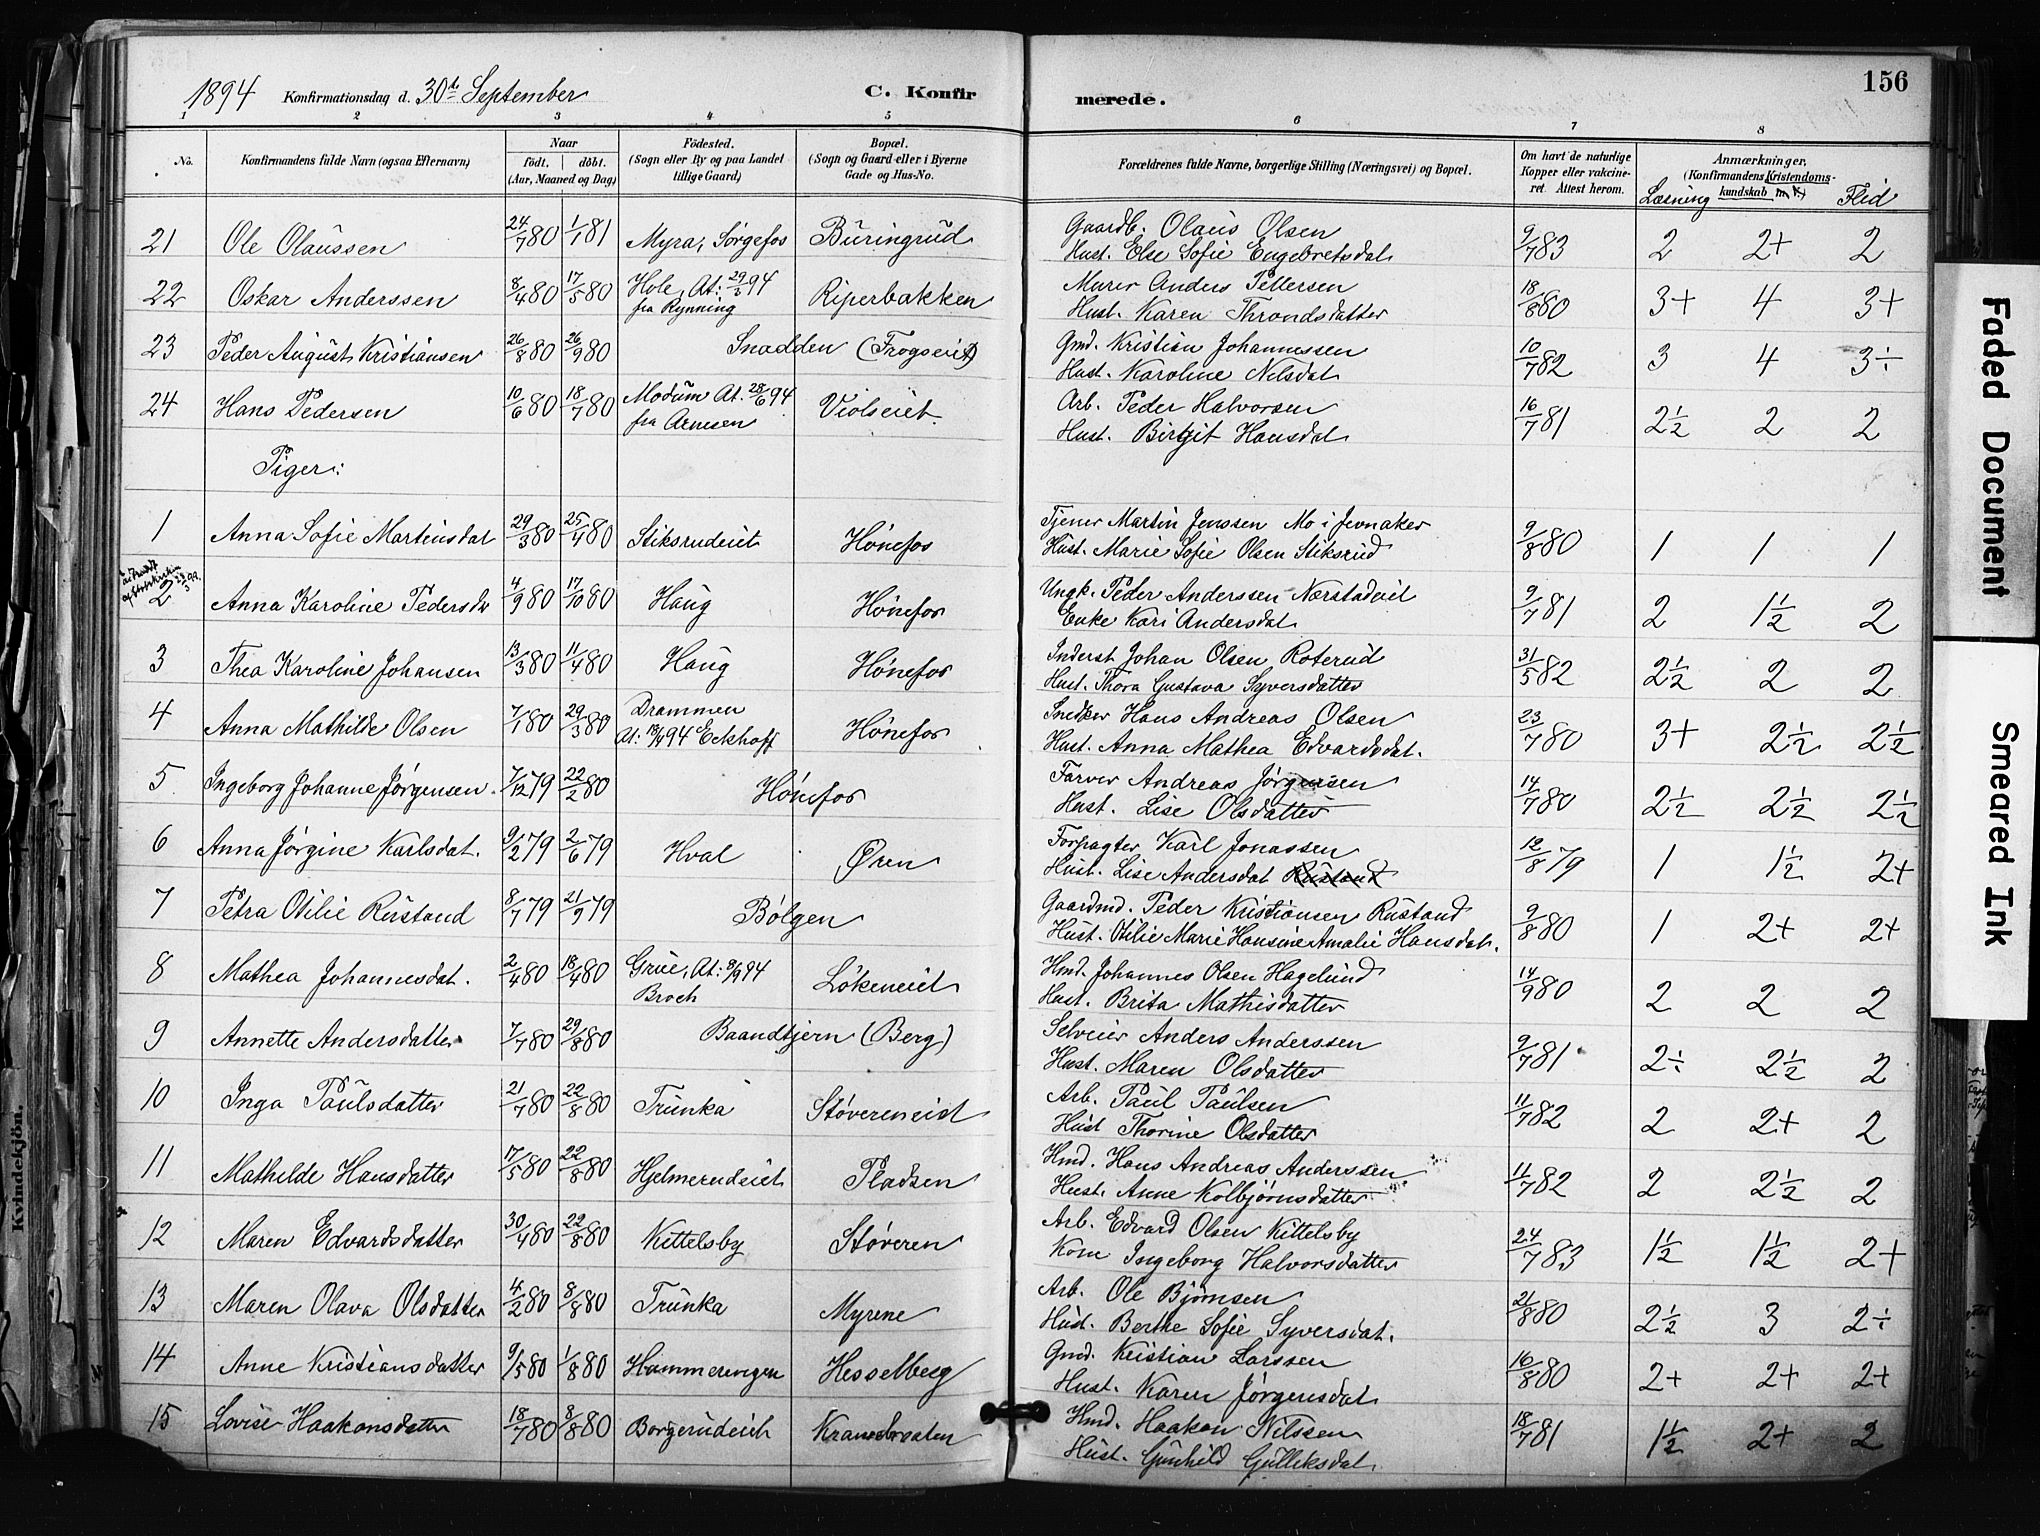 156
1894 Konfirmationsdag d. 30te September C. Konfirmerede.
1 2 3 4 5 6 7 8
No. Konfirmandens fulde Navn (ogsaa Efternavn) Naar födt. döbt. (Aar, Maaned og Dag) Födested. (Sogn eller By og paa Landet tillige Gaard) Bopæl. (Sogn og Gaard eller i Byerne Gade og Hus-No. Forældrenes fulde Navne, borgerlige Stilling (Næringsvei) og Bopæl. Om havt de naturlige Kopper eller vakcineret. Attest herom. Anmærkninger. (Konfirmandens Kristendomskundskab m. v.)
Læsning Flid
21 Ole Olaussen 24/7 80 1/1 81 Myra, Sørgefos Buringrud Gaardb. Olaus Olsen 9/7 83 2 2+ 2
Hust. Else Sofie Engebretsdat.
22 Oskar Anderssen 8/4 80 17/5 80 Hole, At: 29/3 94 Riperbakken Murer Anders Pettersen 18/8 80 3+ 4 3+
fra Rynning Hust. Karen Throndsdatter
23 Peder August Kristiansen 26/8 80 26/9 80 Snadden (Frogseiet) Gmd. Kristian Johannessen 10/7 82 3 4 3÷
Hust. Karoline Nilsdat.
24 Hans Pedersen 10/6 80 18/7 80 Modum At. 28/6 94 Violseiet. Arb. Peder Halvorsen 16/7 81 2½ 2 2
fra Arnesen Hust. Birgit Hansdat.
Piger:
1 Anna Sofie Martinsdat 29/3 80 25/4 80 Stiksrudeiet Hønefos Tjener Martin Jenssen Mo i Jevnaker 9/8 80 1 1 1
Hust. Marie Sofie Olsen Stiksrud
2 Anna Karoline Pedersdr 4/9 80 17/10 80 Haug Hønefos Ungk. Peder Anderssen Nærstadeiet 9/7 81 2 1½ 2
Enke Kari Andersdat.
3 Thea Karoline Johansen 13/3 80 11/4 80 Haug Hønefos Inderst Johan Olsen Roterud 31/5 82 2½ 2 2
Hust. Thora Gustava Syversdatter
4 Anna Mathilde Olsen 7/1 80 29/3 80 Drammen Hønefos Snedker Hans Andreas Olsen 23/7 80 3+ 2½ 2½
94 Eckhoff Hust. Anna Mathea Edvardsdat.
5 Ingeborg Johanne Jørgensen. 7/12 79 22/2 80 Hønefos Farver Andreas Jørgensen 14/7 80 2½ 2½ 2½
Hust. Lise Olsdatter
6 Anna Jørgine Karlsdat. 9/2 79 2/6 79 Hval Øren Forpagter Karl Jonassen 12/8 79 1 1½ 2+
Hust. Lise Andersdat Rustand
7 Petra Otilie Rustand 8/7 79 21/9 79 Bølgen Gaardmd. Peder Kristiansen Rustand 9/8 80 1 2+ 2+
Hust. Otilie Marie Hansine Amalie Hansdat.
8 Mathea Johannesdat. 2/4 80 18/4 80 Grue, At: 8/9 94 Løkeneiet Hmd. Johannes Olsen Hagelund 14/9 80 2 2 2
Broch Hust. Brita Mathisdatter
9 Annette Andersdatter 7/7 80 29/8 80 Baandtjern (Berg) Selveier Anders Anderssen 9/7 81 2÷ 2½ 2
Hust. Maren Olsdatter
10 Inga Paulsdatter 21/7 80 22/8 80 Trunka Støvereneiet Arb. Paul Paulsen 11/7 82 2 2+ 2
Hust Thorine Olsdatter
11 Mathilde Hansdatter 17/5 80 22/8 80 Hjelmerudeiet Pladsen Hmd. Hans Andreas Anderssen 11/7 82 2 2½ 2
Hust. Anne Kolbjørnsdatter
12 Maren Edvardsdatter 30/4 80 22/8 80 Kittelsby Støveren Arb. Edvard Olsen Kittelsby 24/7 83 1½ 1½ 2+
Kone Ingeborg Halvorsdatter
13 Maren Olava Olsdatter 4/2 80 8/8 80 Trunka Myrene Arb. Ole Bjørnsen 21/8 80 2½ 3 2÷
Hust. Berthe Sofie Syversdat.
14 Anne Kristiansdatter 9/5 80 1/8 80 Hammerengen Hesselberg Gmd. Kristian Larssen 16/8 80 2+ 2+ 2+
Hust. Karen Jørgensdat
15 Lovise Haakonsdatter 18/7 80 8/8 80 Borgerudeiet Hmd. Haakon Nilssen 18/7 81 1½ 2+ 2
Hust. Gunhild Gulleksdat.
Kvindekjön.
Faded Document
Smeared Ink